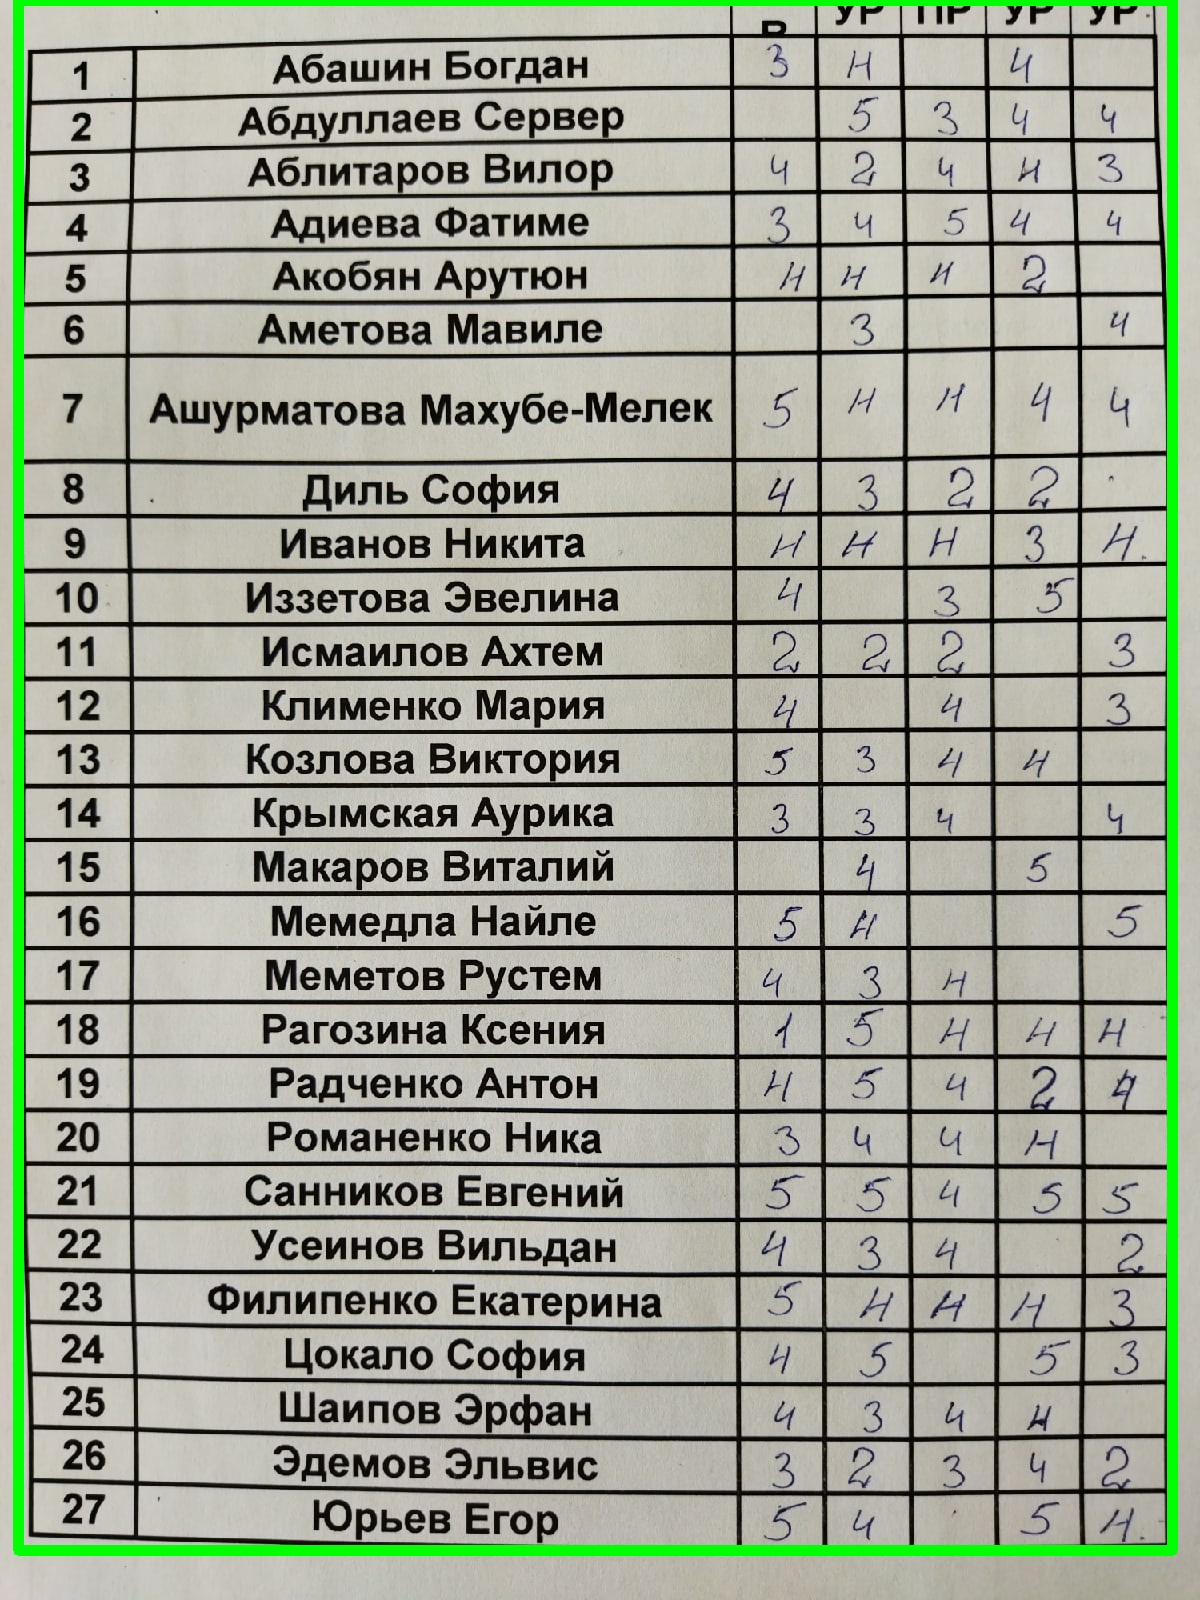 В УР ПР УР УР
1 Абашин Богдан 3 н 4
2 Абдуллаев Сервер 5 3 4 4
3 Аблитаров Вилор 4 2 4 н 3
4 Адиева Фатиме 3 4 5 4 4
5 Акобян Арутюн н н н 2
6 Аметова Мавиле 3 4
7 Ашурматова Махубе-Мелек 5 н н 4 4
8 Диль София 4 3 2 2
9 Иванов Никита н н н 3 н
10 Иззетова Эвелина 4 3 5
11 Исмаилов Ахтем 2 2 2 3
12 Клименко Мария 4 4 3
13 Козлова Виктория 5 3 4 4
14 Крымская Аурика 3 3 4 4
15 Макаров Виталий 4 5
16 Мемедла Найле 5 4 5
17 Меметов Рустем 4 3 н
18 Рагозина Ксения 1 5 н н н
19 Радченко Антон н 5 4 2
20 Романенко Ника 3 4 4 н
21 Санников Евгений 5 5 4 5 5
22 Усеинов Вильдан 4 3 4 2
23 Филипенко Екатерина 5 н н н 3
24 Цокало София 4 5 5 3
25 Шаипов Эрфан 4 3 4
26 Эдемов Эльвис 3 2 3 4 2
27 Юрьев Егор 5 4 5 н